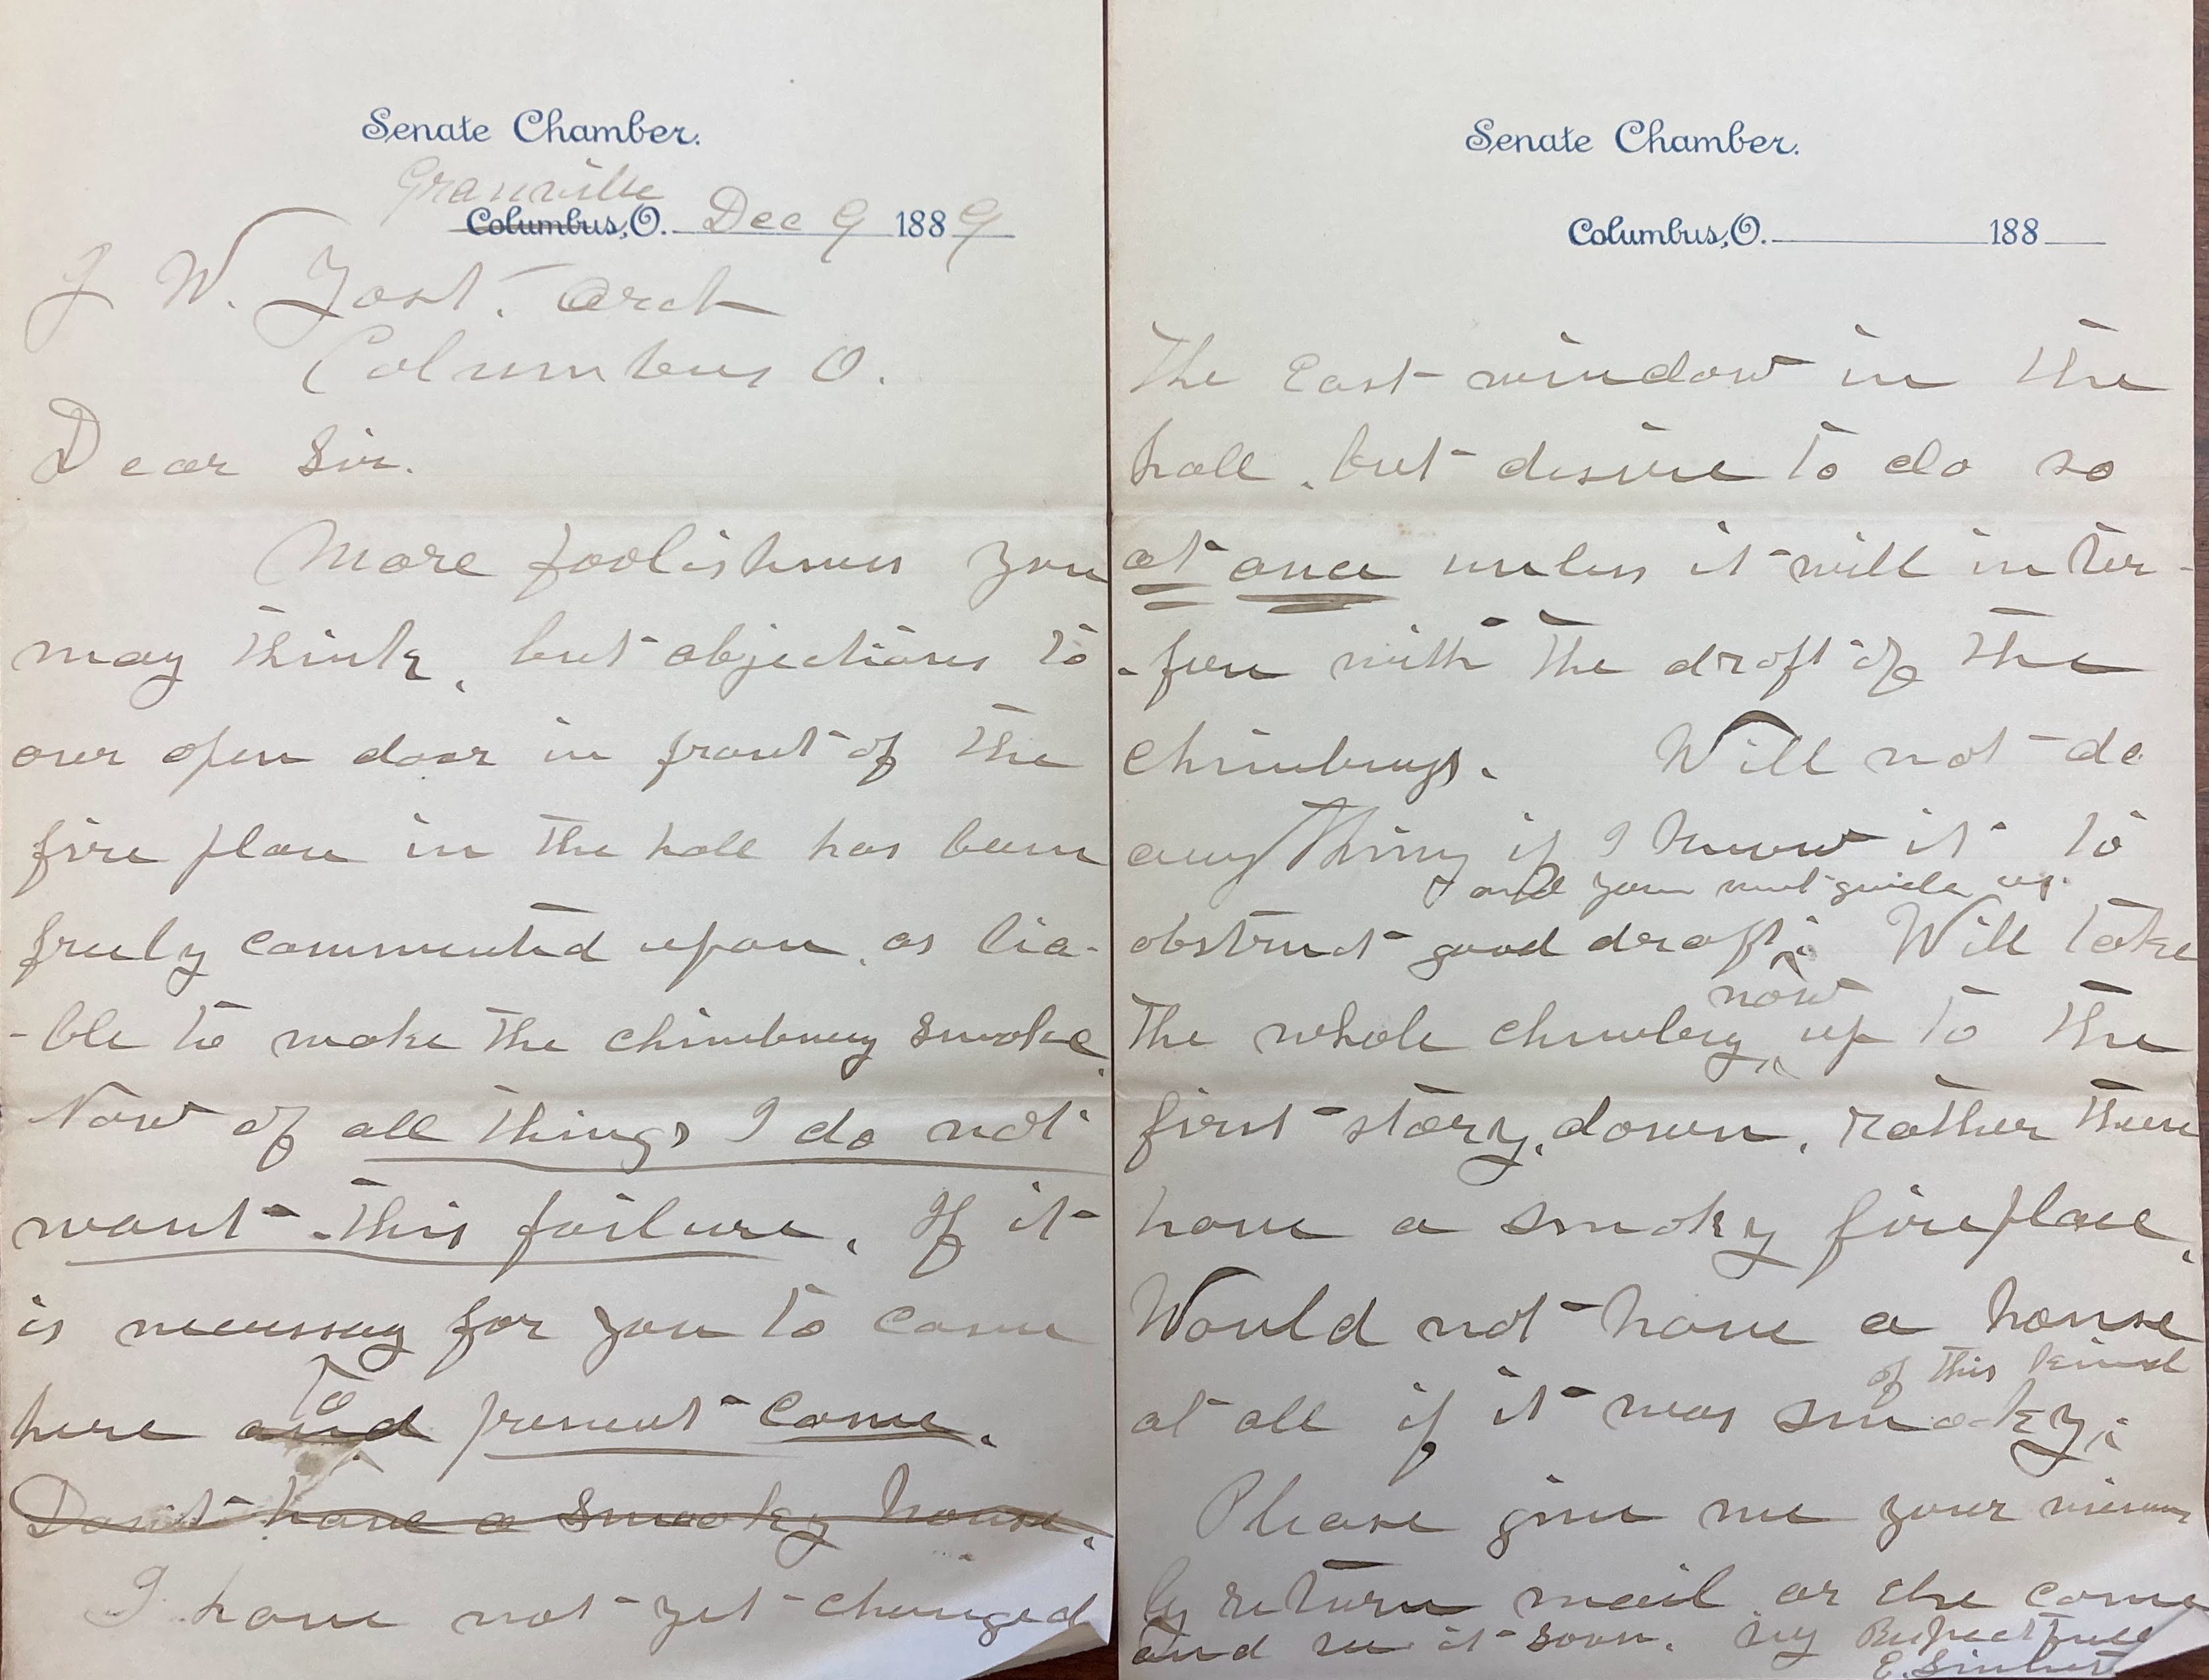 Senate Chamber.
Granville
Columbus, O. Dec 9 1889
J W. Yost. Arch
Columbus O.
Dear Sir.
More foolishness you
may think, but objections to
our open door in front of the
fire place in the hall has been
freely commented upon, as lia-
-ble to make the chimbney smoke.
Now of all things I do not
want this failure. If it
is necessay for you to come
here and to prevent come.
Don't have a smooky house.
I have not yet changed
Senate Chamber.
Columbus, O. 188
The East window in the
hall, but desire to do so
at once unless it will inter-
-fere with the draft of the
chimbnys. Will not do
any thing if I know it to
and you must guide us.
obstruct good draft. Will take
now
the whole chimbny up to the
first story, down, rather then
have a smoky fireplace.
Would not have a house
of this kind
at all if it was smoky.
Please give me your views
by return mail or else come
and see it soon. Respectfull
E. Sinnet